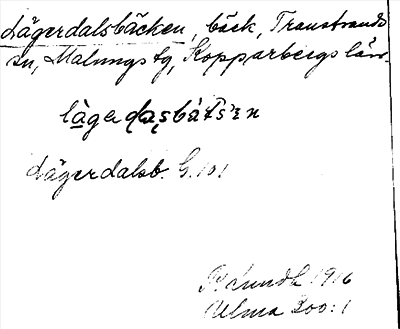 Lägerdalsbäcken, bäck, Transtrands
sn, Malungs tg, Kopparbergs län.
Lägerdalsb. G. 101
Lundh 1916
Ulma 200:1